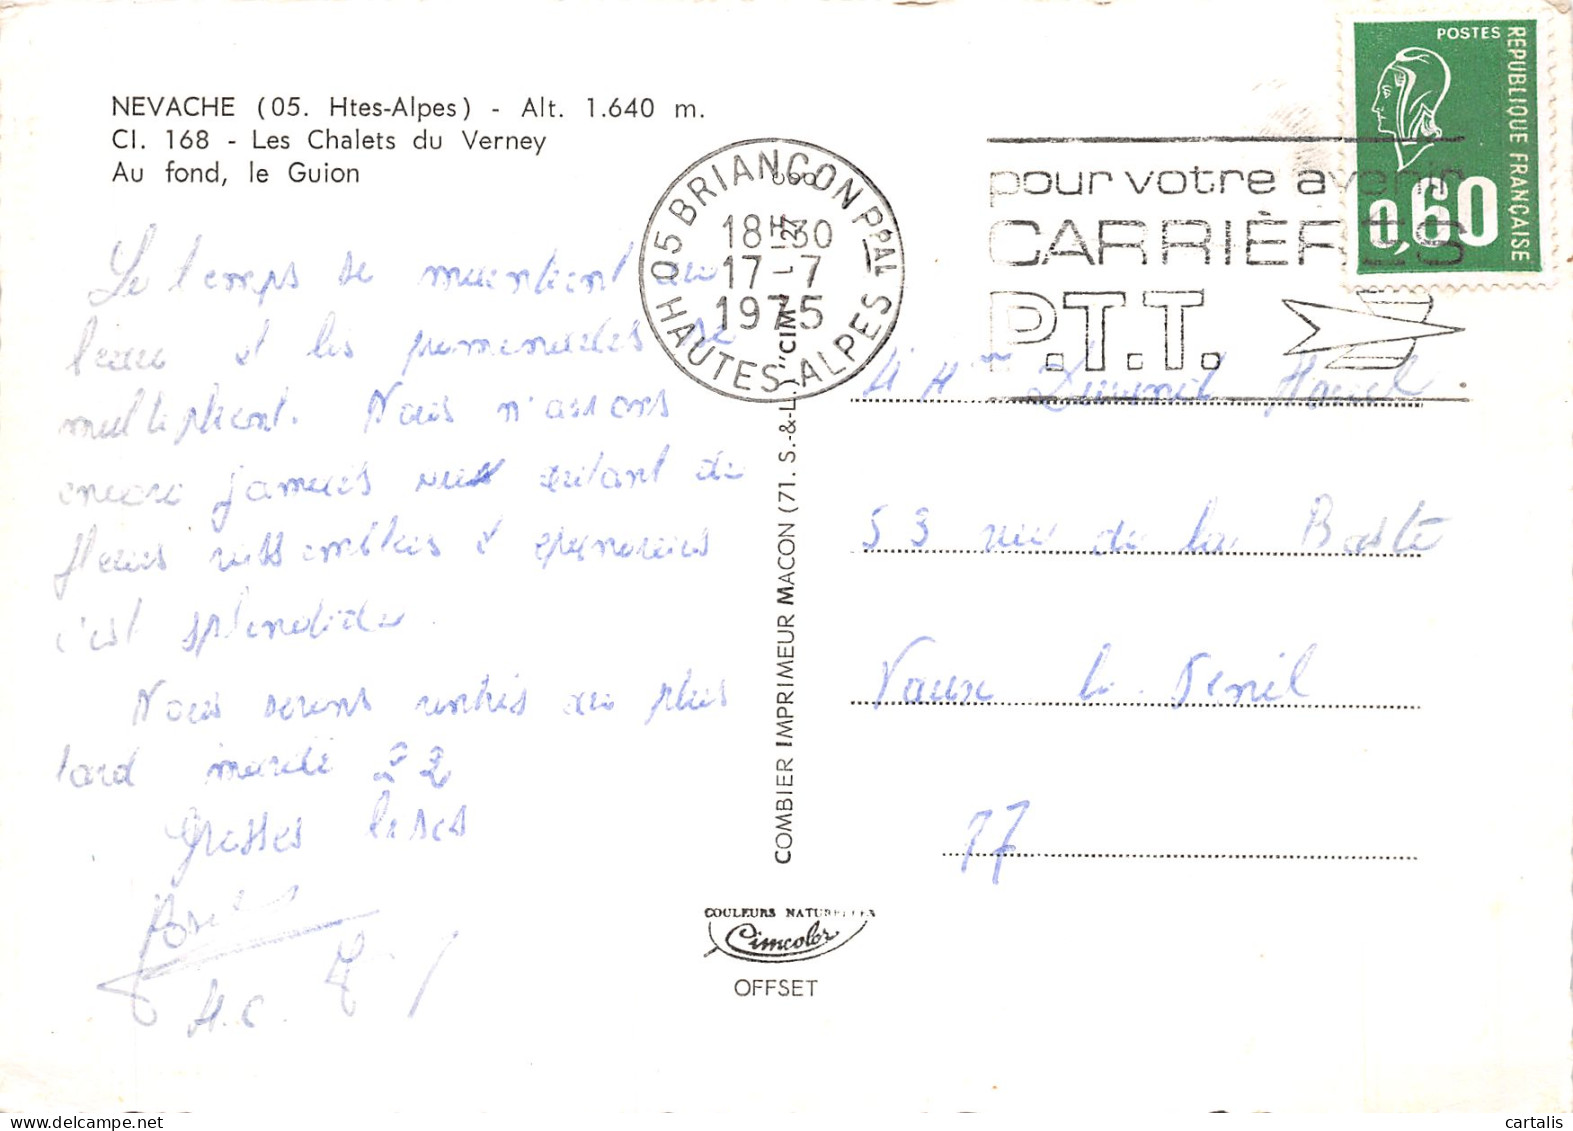 NEVACHE (05. Htes-Alpes) - Alt. 1.640 m.
CI. 168 - Les Chalets du Verney
Au fond, le Guion
Le temps se maintient au
beau et les promenades se
multiplient. Nous n'avons
encore jamais vu autant de
fleurs rassemblées & épanouies
c'est splendide
Nous serons rentrés au plus
tard mardi 22
Grosses bises
05 BRIANCON PPAL
18H30
17-7
1975
HAUTES-ALPES
pour votre avenir
CARRIÈRES
P.T.T.
POSTES
REPUBLIQUE FRANÇAISE
0,60
COMBIER IMPRIMEUR MACON (71. S.-&-L.) "CIM"
53 rue de la
Vaux le Penil
77
COULEURS NATURELLES
Cimcolor
OFFSET
cartalis